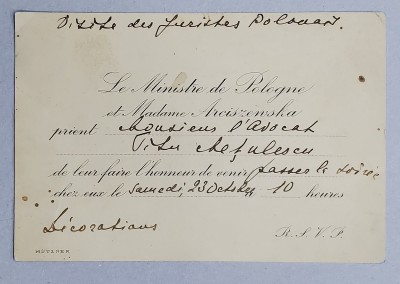 Visite des Juristes Polonais.
Le Ministre de Pologne
et Madame Arciszewska
prient Monsieur l'Avocat
Titu
de leur faire l'honneur de venir passer la soirée
chez eux le Samedi, 23 Octobre 10 heures
Décorations
R. S. V. P.
HÜTZNER